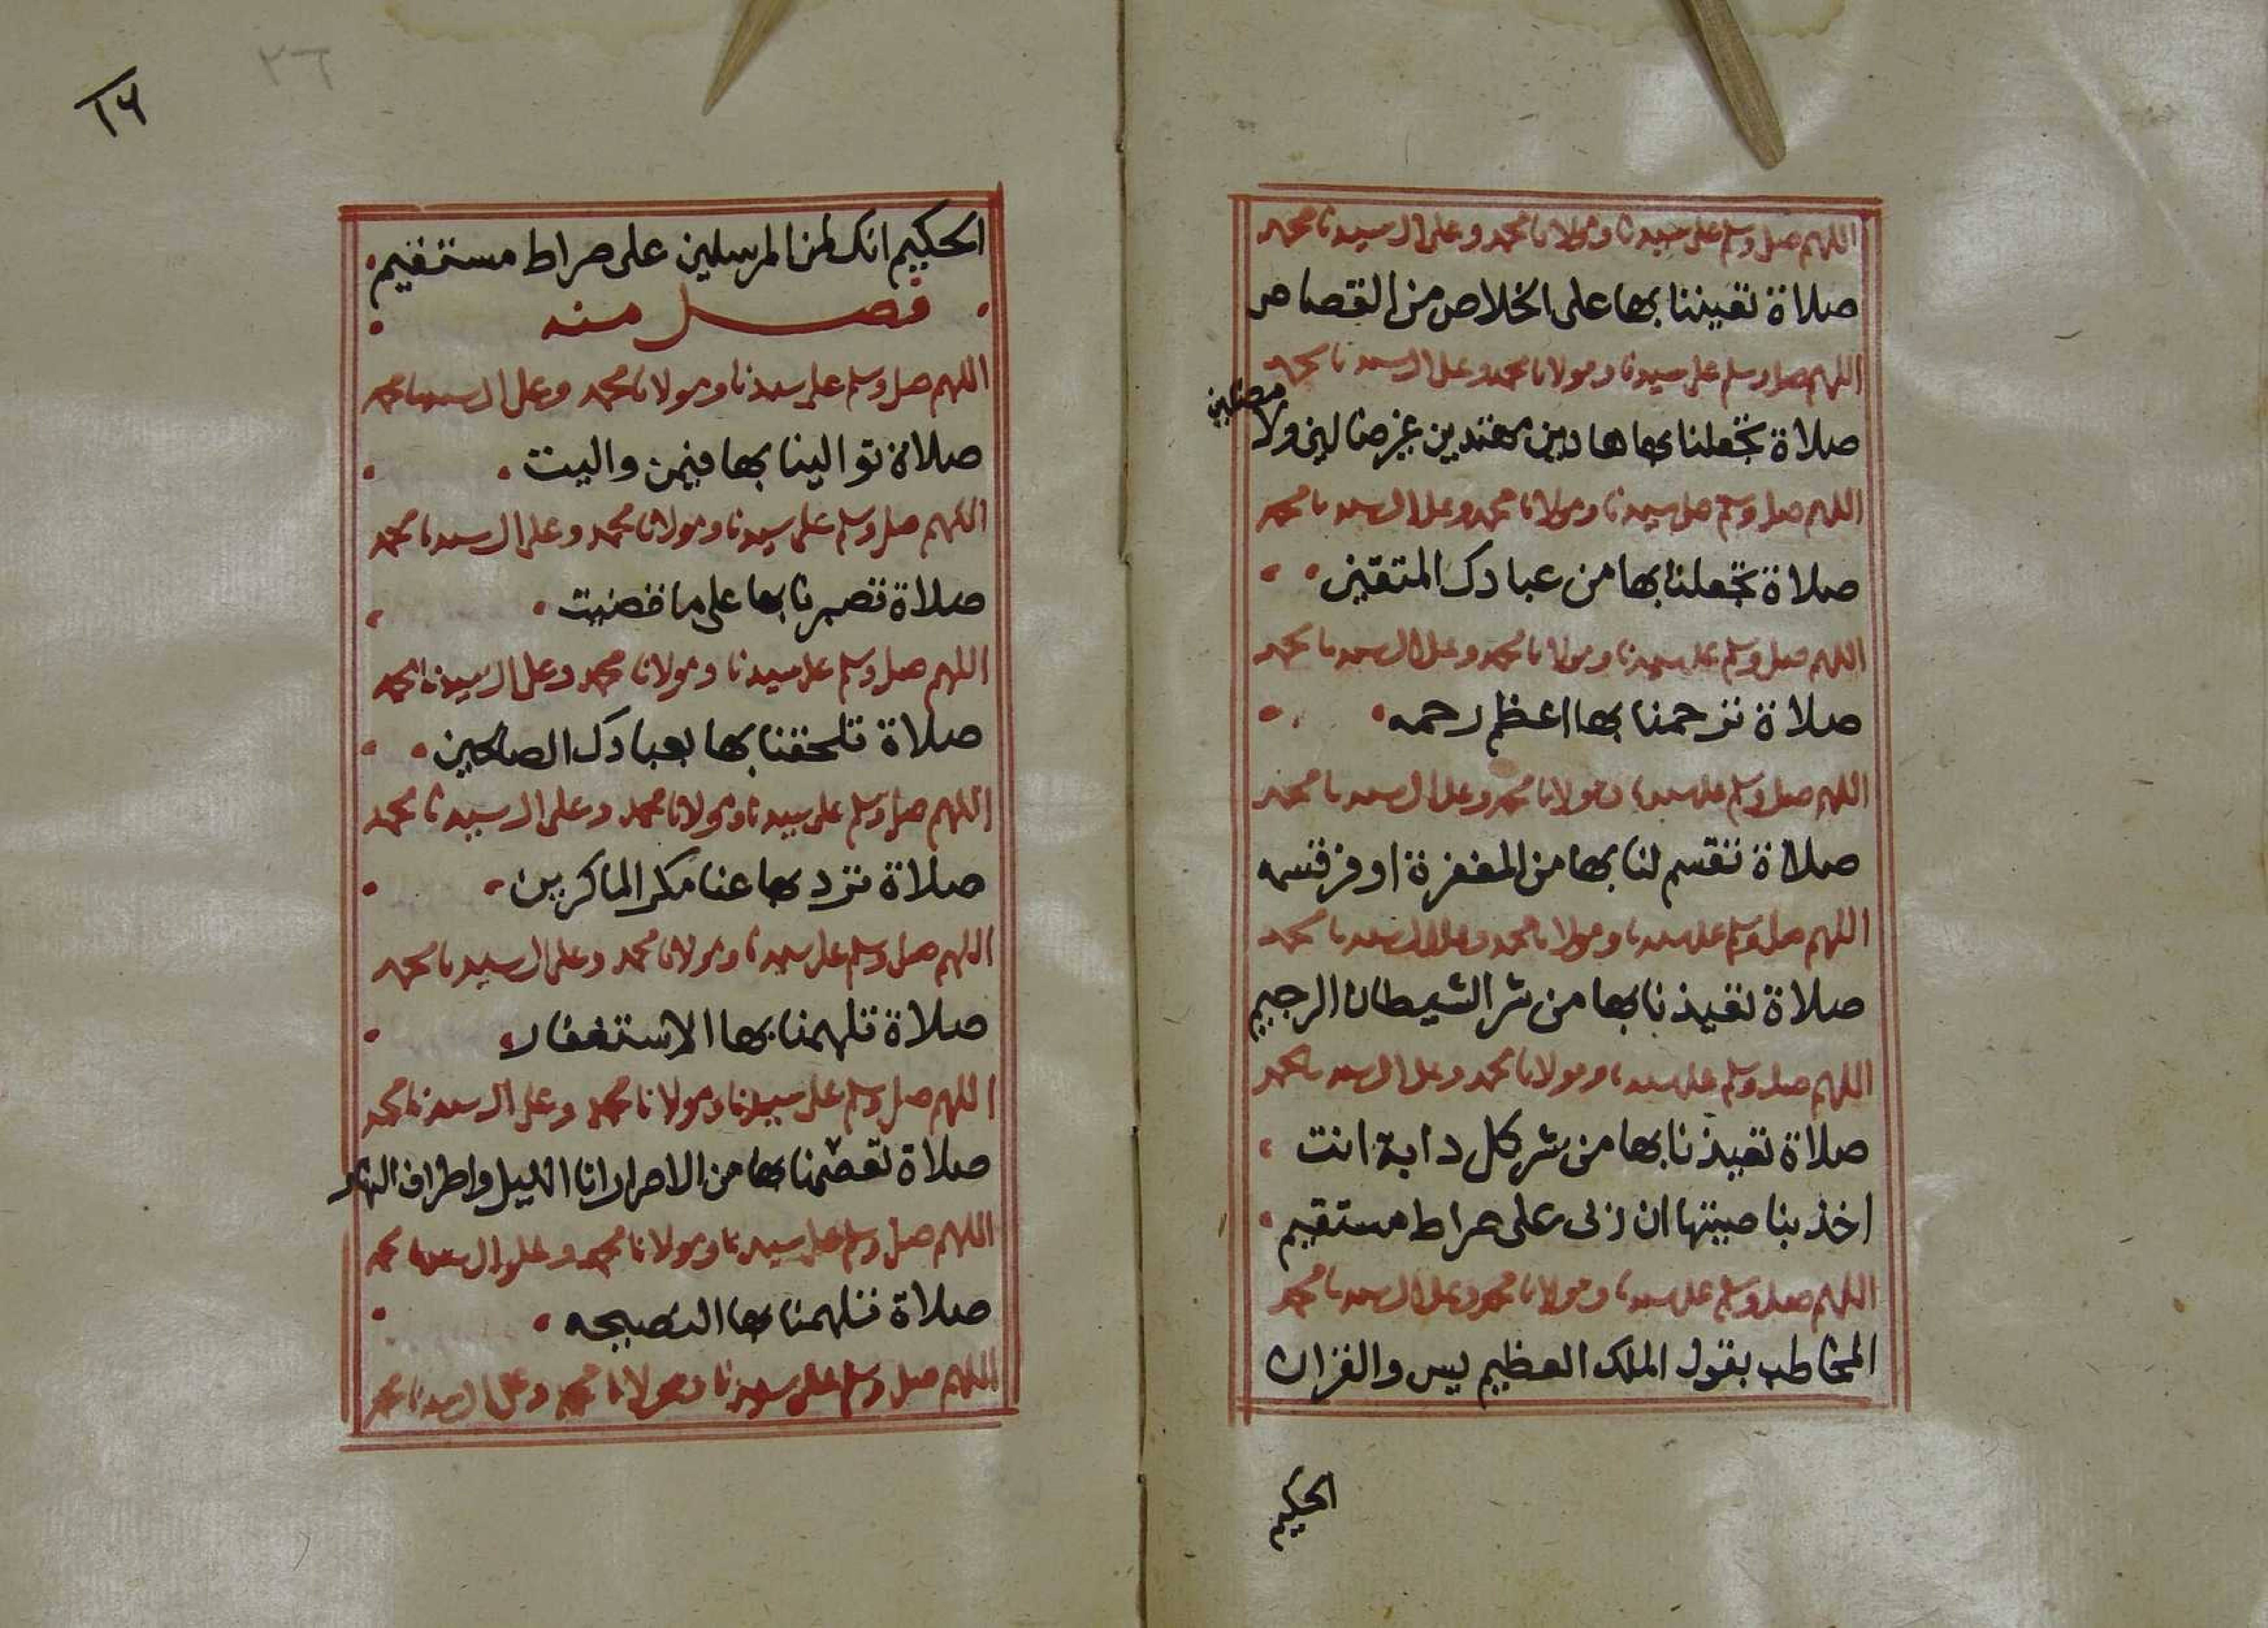 اللهم صل وسلم على سيدنا ومولانا محمد وعلى ال سيدنا محمد
صلاة تعيننا بها على الخلاص من القصاص
اللهم صل وسلم على سيدنا ومولانا محمد وعلى ال سيدنا محمد
صلاة تجعلنا بها هادين مهتدين غير ضالين ولا مضلين
اللهم صل وسلم على سيدنا ومولانا محمد وعلى ال سيدنا محمد
صلاة تجعلنا بها من عبادك المتقين
اللهم صل وسلم على سيدنا ومولانا محمد وعلى ال سيدنا محمد
صلاة ترحمنا بها اعظم رحمه
اللهم صل وسلم على سيدنا ومولانا محمد وعلى ال سيدنا محمد
صلاة تقسم لنا بها من المغفرة اوفر قسمه
اللهم صل وسلم على سيدنا ومولانا محمد وعلى ال سيدنا محمد
صلاة تعيذنا بها من شر الشيطان الرجيم
اللهم صل وسلم على سيدنا ومولانا محمد وعلى ال سيدنا محمد
صلاة تعيذنا بها من شر كل دابة انت
اخذ بناصيتها ان ربى على صراط مستقيم
اللهم صل وسلم على سيدنا ومولانا محمد وعلى ال سيدنا محمد
المخاطب بقول الملك العظيم يس والقران
الحكيم
١٦
٢٦
الحكيم انك لمن المرسلين على صراط مستقيم
فصل منه
اللهم صل وسلم على سيدنا ومولانا محمد وعلى ال سيدنا محمد
صلاة توالينا بها فيمن واليت
اللهم صل وسلم على سيدنا ومولانا محمد وعلى ال سيدنا محمد
صلاة تصبرنا بها على ما قضيت
اللهم صل وسلم على سيدنا ومولانا محمد وعلى ال سيدنا محمد
صلاة تلحقنا بها بعبادك الصالحين
اللهم صل وسلم على سيدنا ومولانا محمد وعلى ال سيدنا محمد
صلاة ترد بها عنا مكر الماكرين
اللهم صل وسلم على سيدنا ومولانا محمد وعلى ال سيدنا محمد
صلاة تلهمنا بها الاستغفار
اللهم صل وسلم على سيدنا ومولانا محمد وعلى ال سيدنا محمد
صلاة تعصمنا بها من الاصرار انا الليل واطراف النهار
اللهم صل وسلم على سيدنا ومولانا محمد وعلى ال سيدنا محمد
صلاة تلهمنا بها النصيحه
اللهم صل وسلم على سيدنا ومولانا محمد وعلى ال سيدنا محمد